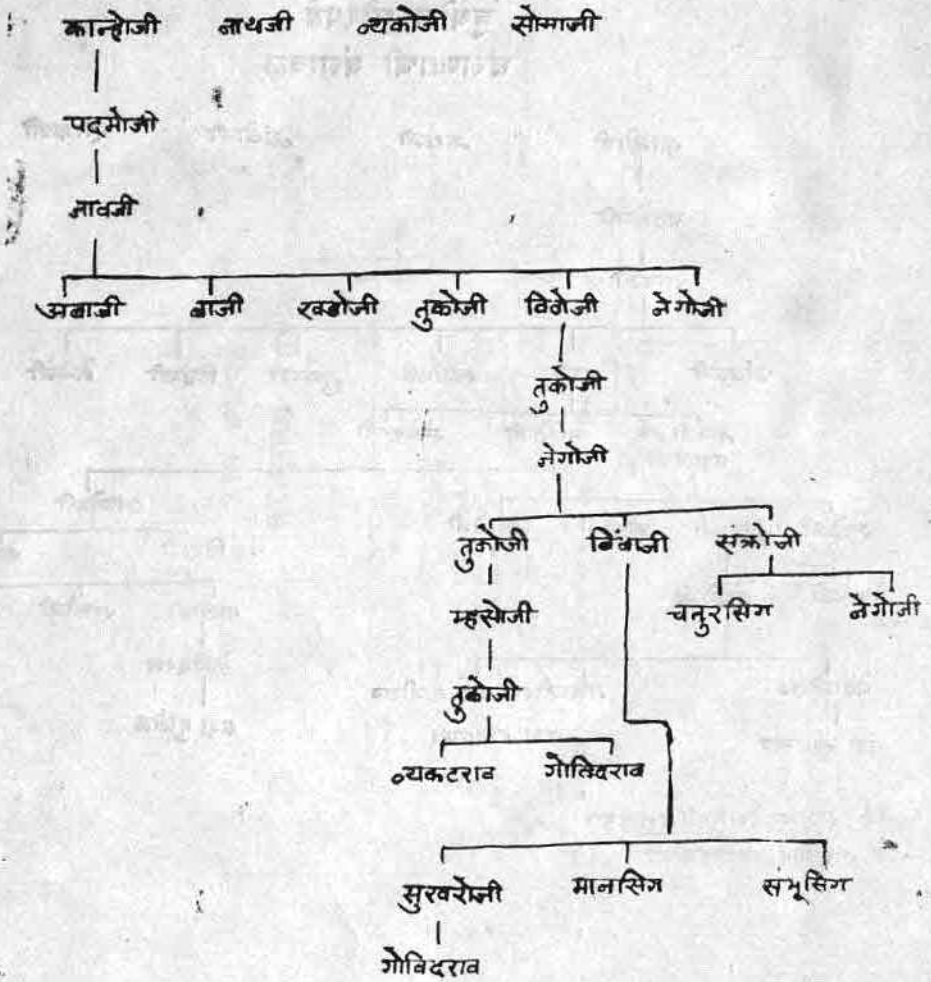 कान्होजी नाथजी व्यकोजी सोमाजी
पद्मोजी
नावजी
अबाजी बाजी खंडोजी तुकोजी विठोजी नेगोजी
तुकोजी
नेगोजी
तुकोजी बिंबाजी संक्रोजी
म्हसोजी चतुरसिग नेगोजी
तुकोजी
व्यकटराव गोविदराव
सुखरोजी मानसिग संभूसिग
गोविदराव